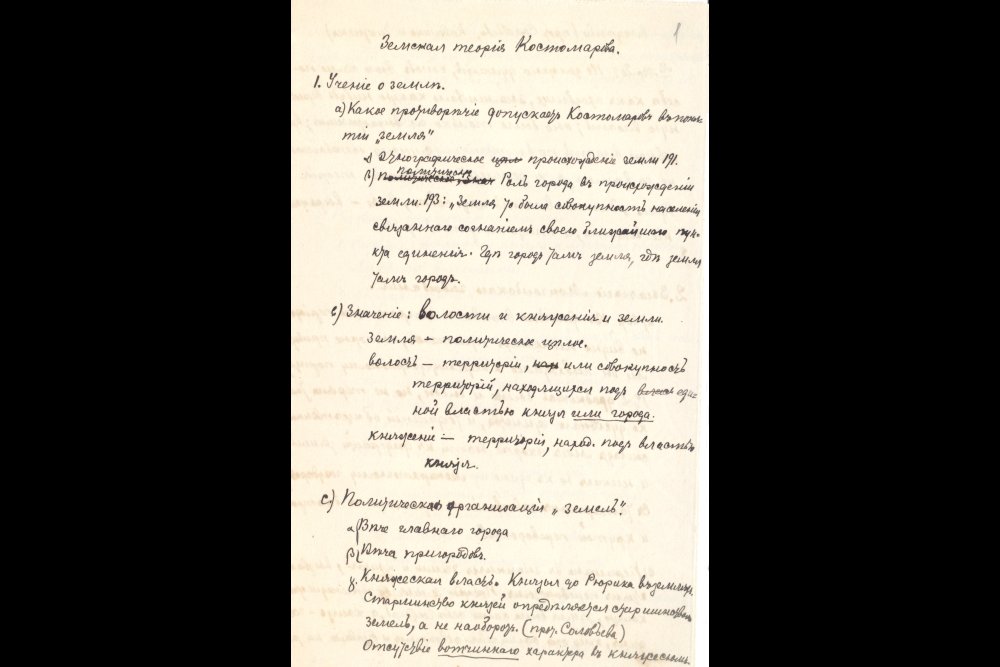 1
Земская теорія Костомарова.
1. Ученіе о землѣ.
а) Какое противорѣчіе допускаетъ Костомаровъ въ поня-
тіи „земля“
α Этнографическое происхожденіе земли 191.
политическое
β) Политическое, Роль города въ происхожденіи
земли. 193: „Земля то была совокупность населенія
связаннаго сознаніемъ своего ближайшаго пун-
кта единенія. Гдѣ городъ тамъ земля, гдѣ земля
тамъ городъ.
в) Значеніе: волости и княженія и земли.
Земля – политическое цѣлое.
волость – территорія, или совокупность
территорій, находящихся подъ еди-
ной властью князя или города.
княженіе – территорія, наход. подъ властью
князя.
с) Политическая организація „земель“.
α Вѣче главнаго города
β Вѣча пригородовъ.
γ. Княжеская власть. Князья до Рюрика въ земляхъ.
Старшинство князей опредѣляется старшинствомъ
земель, а не наоборотъ. (прот. Соловьева)
Отсутствіе вотчиннаго характера въ княжескомъ